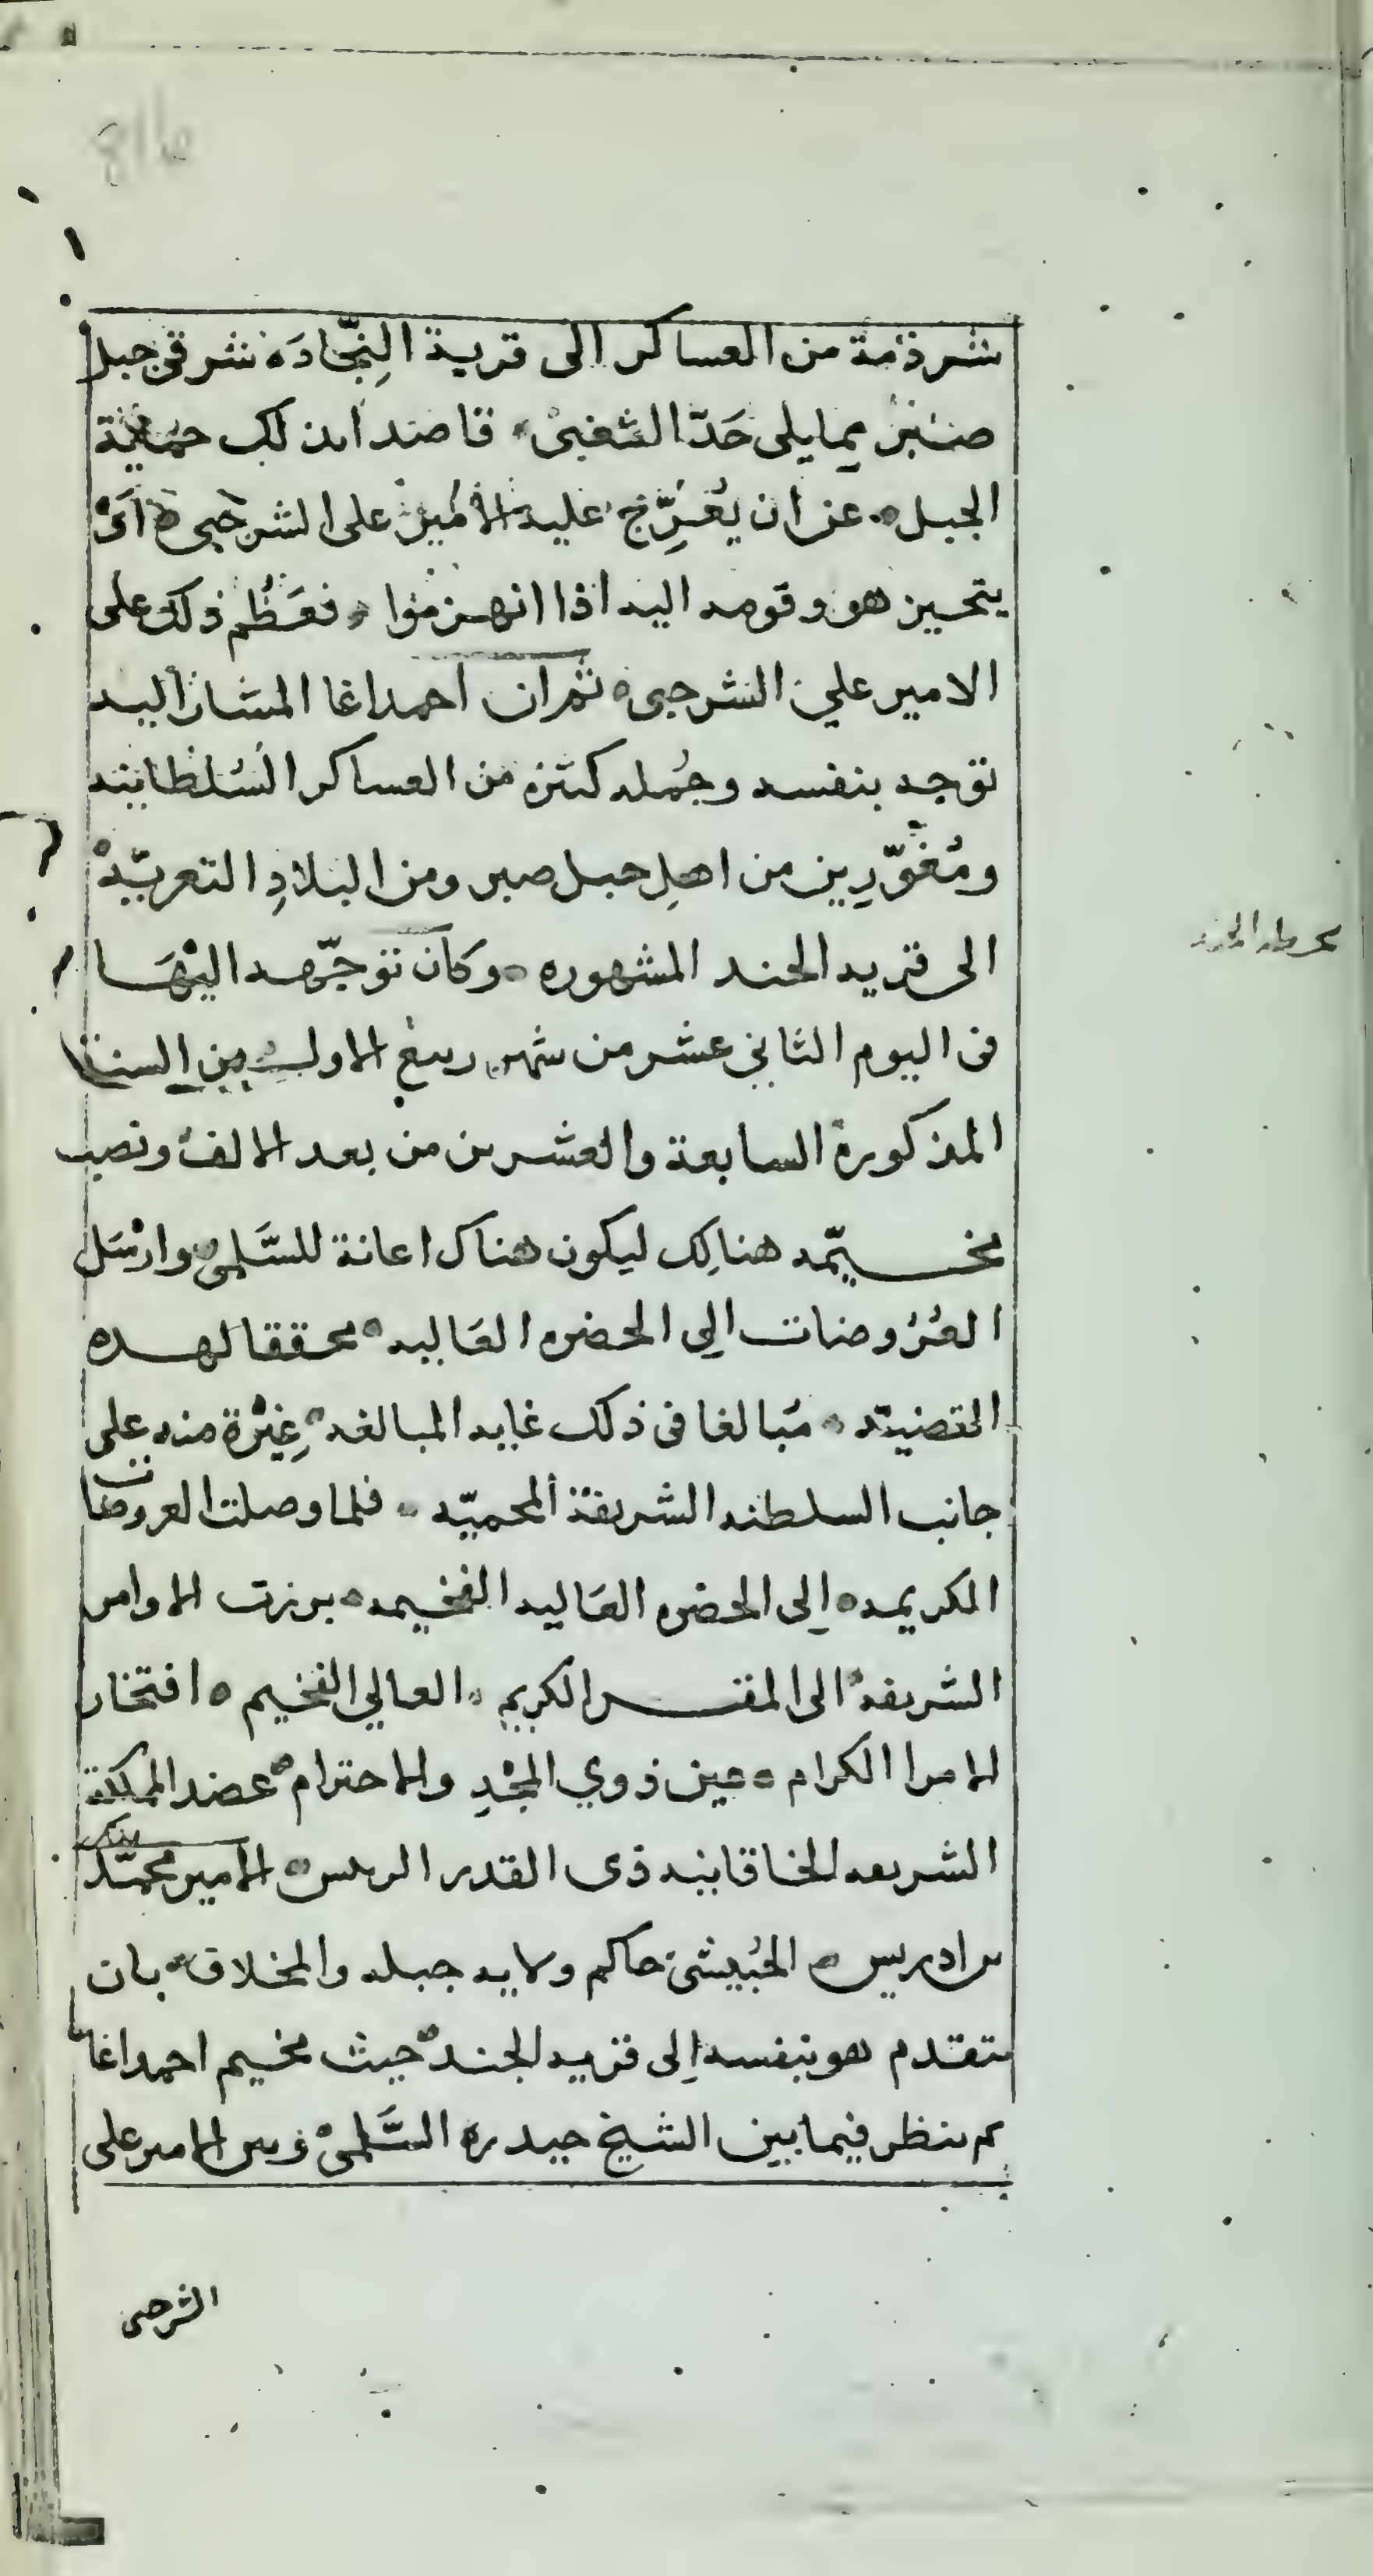 شرذمة من العساكر الى قرية النِجّادَه شرقي جبل
صبر مما يلي حَدّ الشعبي قاصدا بذلك حماية
الجبل عن ان يُعَرِّج عليه الامير على الشرجبي او
يتحيز هو وقومه اليه اذا انهزموا فعَظُم ذلك على
الامير علي الشرجبي ثم ان احمد اغا المشار اليه
توجه بنفسه وجُمله كثيره من العساكر السُلطانيه
ومُغَوّرِين من اهلِ جبل صبر ومن البلادِ التعزيّه
الى قريه الجند المشهوره وكان توجّهه اليْهَا
فى اليوم الثاني عشر من شهر ربيع الاول من السنة
المذكورة السابعة والعشرين من بعد الالف ونصب
مخيّمه هنالِك ليكون هناك اعانة للسَّلمي وارْسَل
العُرُوضات الِى الحضره العَاليه محققا لهذه
القضيّه مُبالغا فى ذلك غايه المبالغه غِيْرة منه على
جانب السلطنه الشريفة المحميّه فلما وصلت العروضات
الكريمه اِلى الحضره العَاليه الفخيمه برزت الاوامر
الشريفه الى المقر الكريم العالي الفخيم افتخار
الامرا الكرام عين ذوي المجْدِ والاحترام عضد المملكة
الشريفه الخاقانيه ذى القدر الرئيس الامير محمّد بيك
بن ادريس الحُبيشي حاكم ولايه جبله والمخلاف بان
يتقدم هو بنفسه اِلى قريه الجند حيث مخيم احمد اغا
ثم ينظر فيما بين الشيخ حيدره السَّلمي وبين الامير على
الشرجبى